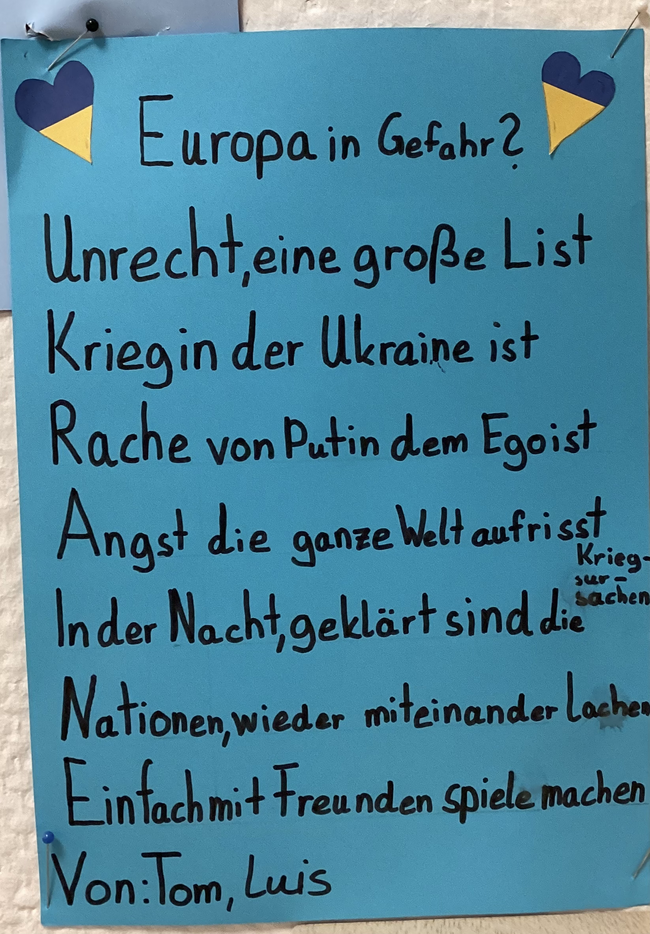 Europa in Gefahr?
Unrecht, eine große List
Krieg in der Ukraine ist
Rache von Putin dem Egoist
Angst die ganze Welt aufrisst
In der Nacht, geklärt sind die Krieg-
sur-
sachen
Nationen, wieder miteinander lachen
Einfach mit Freunden spiele machen
Von: Tom, Luis